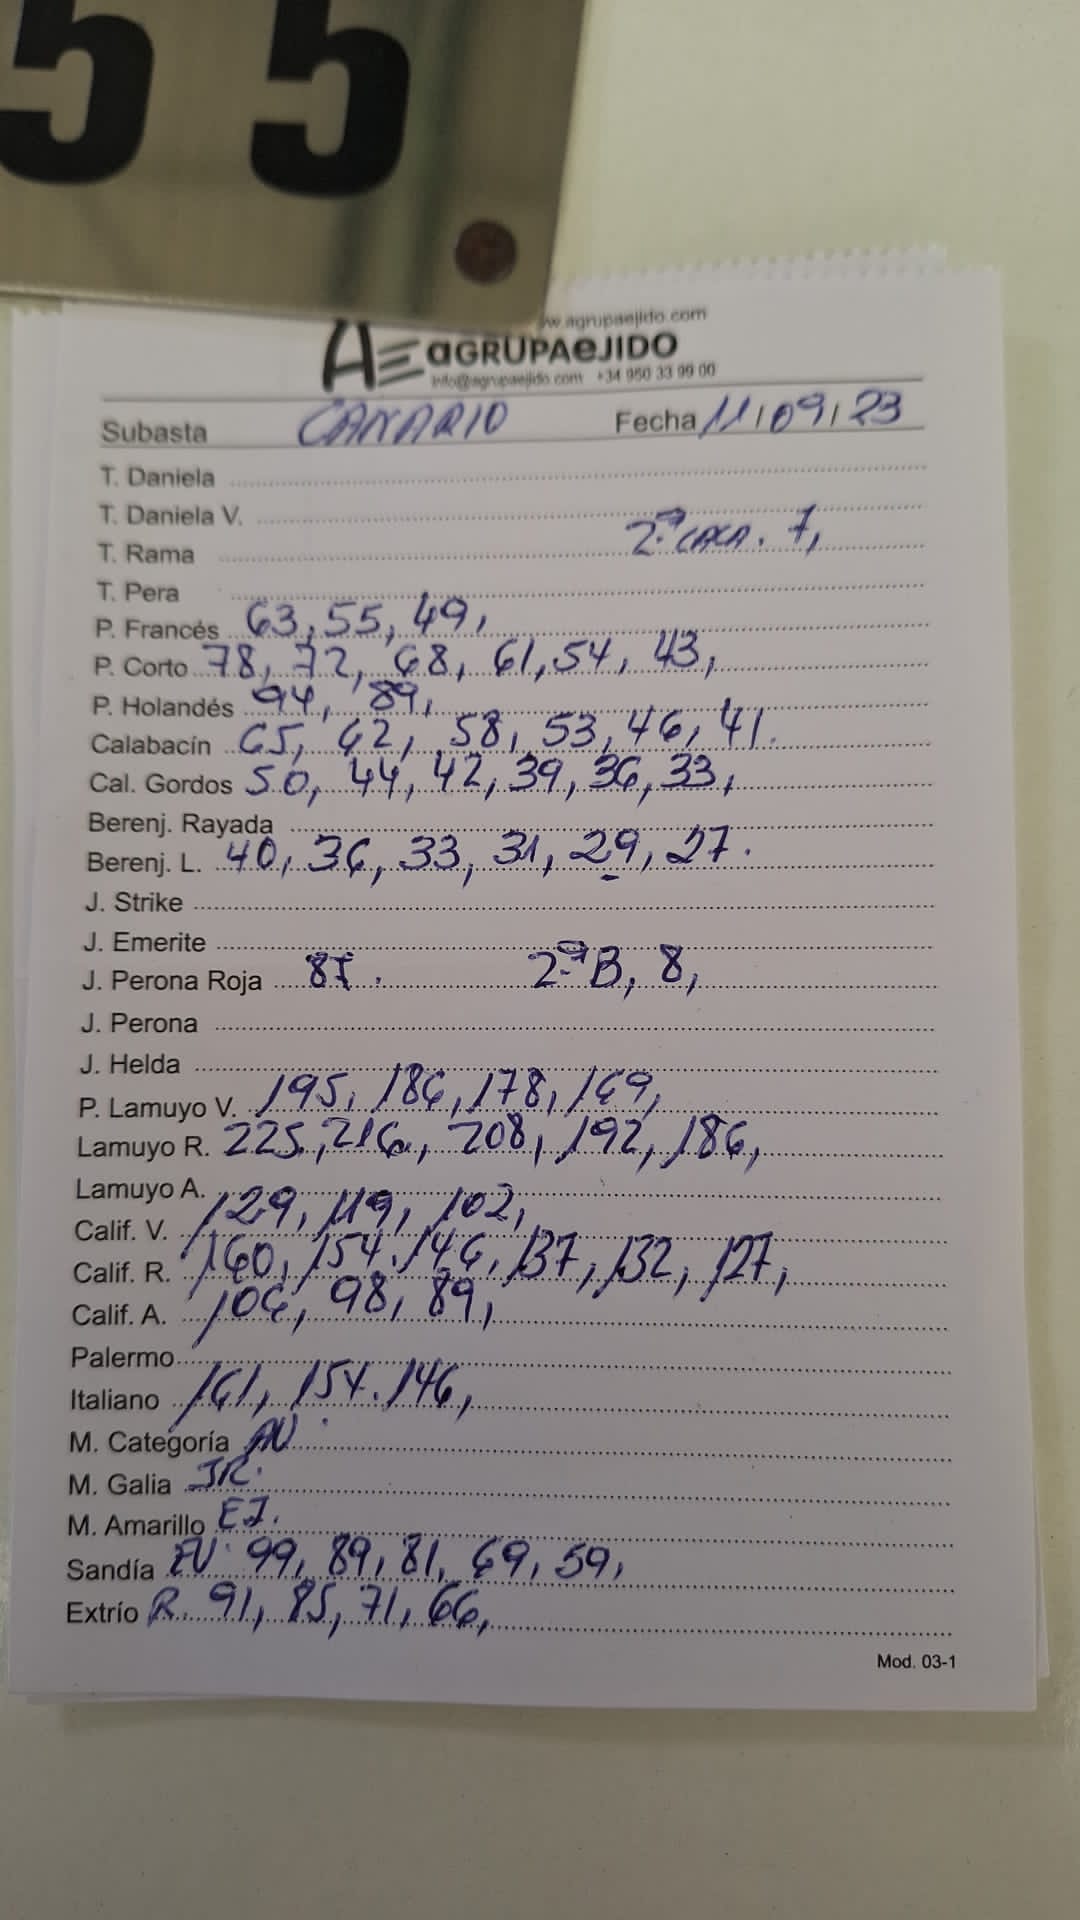 55
www.agrupaejido.com
AE aGRUPAeJIDO
info@agrupaejido.com +34 950 33 99 00
Subasta CANARIO Fecha 11/09/23
T. Daniela
T. Daniela V.
T. Rama 2.ª CACA. 7,
T. Pera
P. Francés 63, 55, 49,
P. Corto 78, 72, 68, 61, 54, 43,
P. Holandés 94, 89,
Calabacín 65, 62, 58, 53, 46, 41.
Cal. Gordos 50, 44, 42, 39, 36, 33,
Berenj. Rayada
Berenj. L. 40, 36, 33, 31, 29, 27.
J. Strike
J. Emerite
J. Perona Roja 87. 2.ª B, 8,
J. Perona
J. Helda
P. Lamuyo V. 195, 186, 178, 169,
Lamuyo R. 225, 216, 208, 192, 186,
Lamuyo A.
Calif. V. 129, 119, 102,
Calif. R. 160, 154. 146, 137, 132, 127,
Calif. A. 106, 98, 89,
Palermo
Italiano 161, 154. 146,
M. Categoría AN
M. Galia JR.
M. Amarillo EJ.
Sandía FV. 99, 89, 81, 69, 59,
Extrío R. 91, 85, 71, 66,
Mod. 03-1